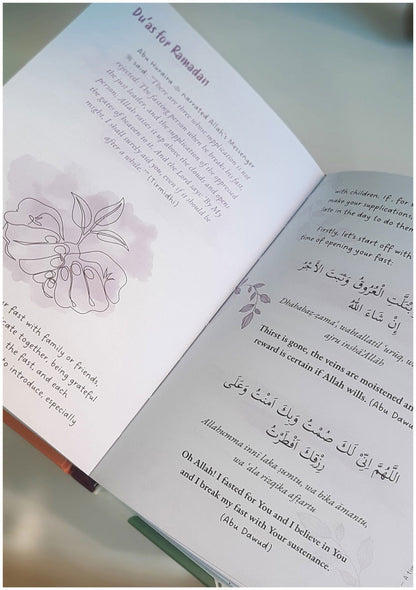 Du'as for Ramadan
Abu Huraira narrated Allah's Messenger
ﷺ said: "There are three whose supplication is not
rejected: The fasting person when he breaks his fast,
the just leader, and the supplication of the oppressed
person; Allah raises it up above the clouds and opens
the gates of heaven to it. And the Lord says: 'By My
might, I shall surely aid you, even if it should be
after a while.'" (Tirmidhi)
fast with family or friends,
together, being grateful
the fast, and each
to introduce, especially
with children, if, for
make your supplications,
late in the day to do them
Firstly, let's start off with
time of opening your fast.
الْعُرُوقُ وَثَبَتَ الْأَجْرُ
إِنْ شَاءَ اللهُ
Dhahabaz-zama', wabtallatil 'urūq, wa
ajru inshā'Allāh
Thirst is gone, the veins are moistened and
reward is certain if Allah wills. (Abu Dawud
اللَّهُمَّ إِنِّي لَكَ صُمْتُ وَبِكَ آمَنْتُ وَعَلَى
رِزْقِكَ أَفْطَرْتُ
Allahumma inni laka sumtu, wa bika āmantu,
wa 'ala rizqika aftartu
Oh Allah! I fasted for You and I believe in You
and I break my fast with Your sustenance.
(Abu Dawud)